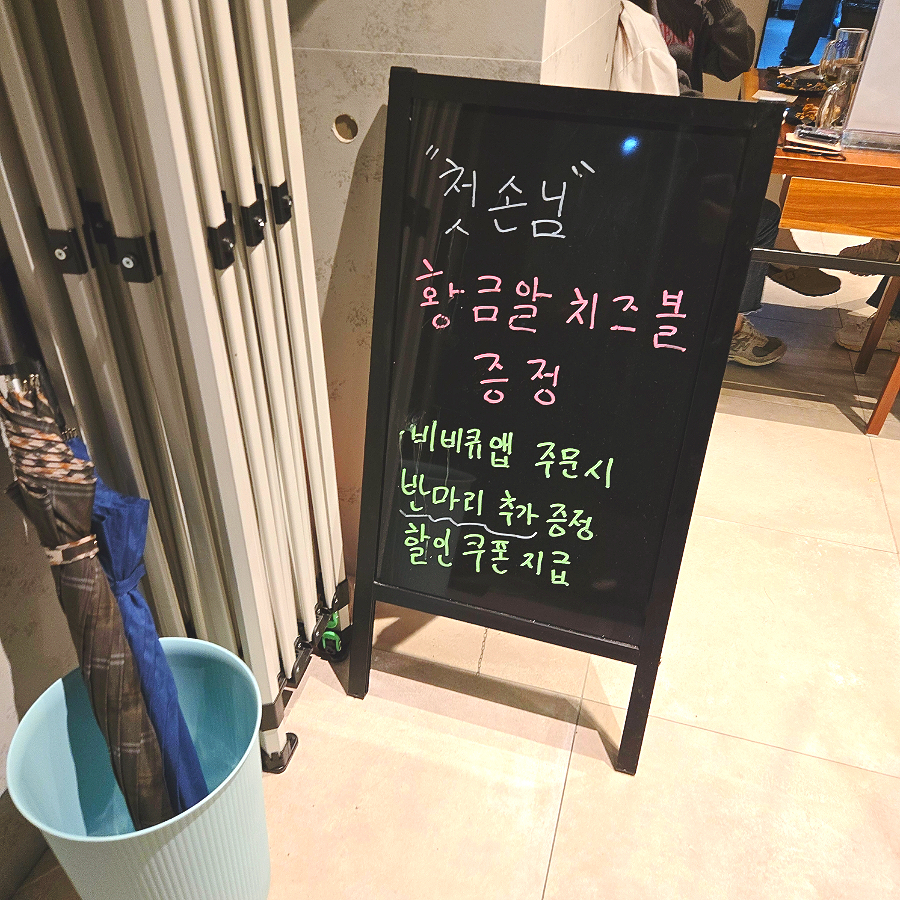 "첫손님"
황금알 치즈볼
증정
비비큐앱 주문시
반마리 추가 증정
할인쿠폰지급